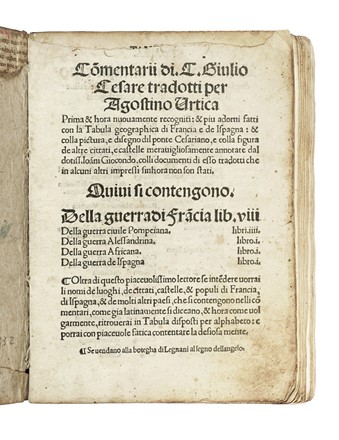 Cōmentarii di. C. Giulio
Cesare tradotti per
Agostino Vrtica
Prima & hora nuouamente recogniti: & piu adorni fatti
con la Tabula geographica di Francia e de Ispagna: &
colla pictura, e disegno dil ponte Cesariano, e colla figura
de altre cittati, e castelle merauigliosamente annotate dal
dottss. Ioāni Giocondo, colli documenti di esso tradotti che
in alcuni altri impressi sinhora non son stati.
Quiui si contengono.
Della guerra di Frācia lib. viii
Della guerra ciuile Pompeiana. libri.iiii.
Della guerra Alessandrina. libro.i.
Della guerra Africana. libro.i.
Della guerra de Ispagna libro.i.
¶ Oltra di questo piaceuolissimo lettore se intēdere uorrai
li nomi de luoghi, de cittati, castelle, & populi di Francia,
di Ispagna, & de molti altri paesi, che si contengono nelli cō
mentari, come gia latinamente si diceano, & hora come uol
garmente, ritrouerai in Tabula disposti per alphabeto: e
porrai con piaceuole fatica contentare la desiosa mente.
¶ Se uendano alla botegha di Legnani al segno dellangelo.